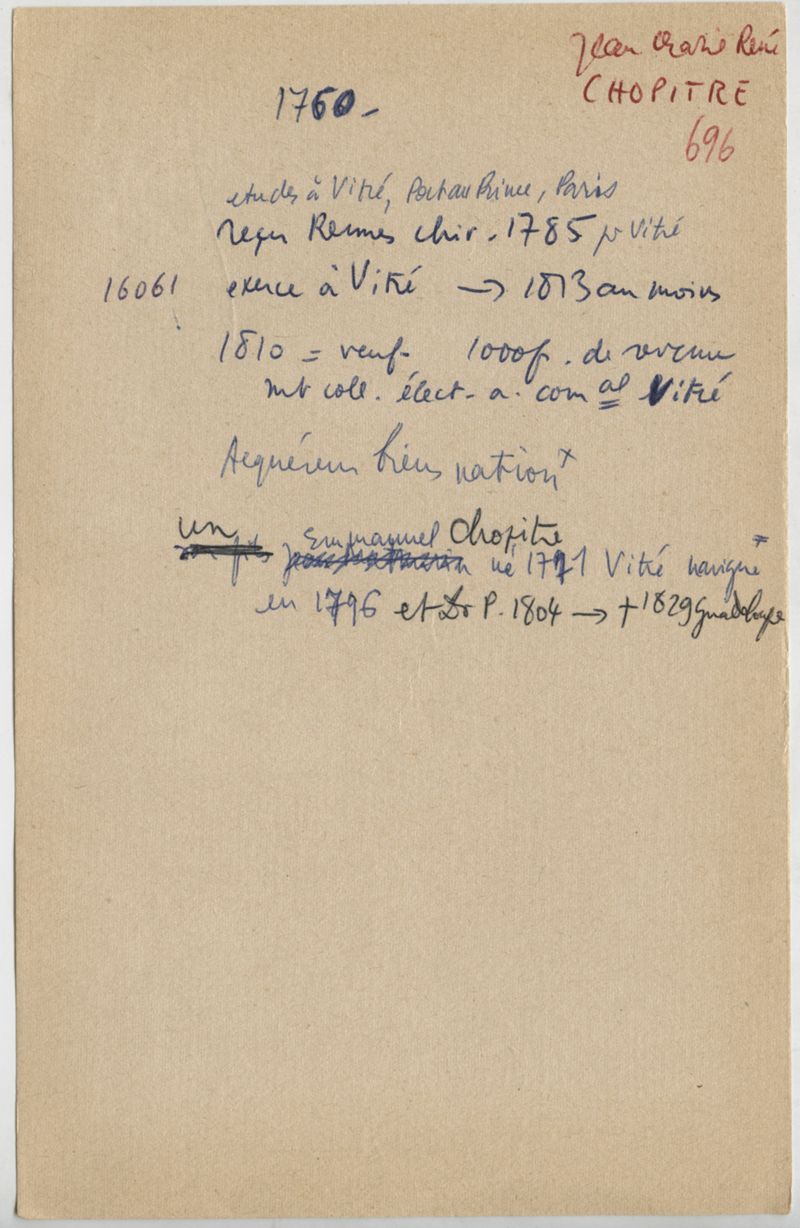 Jean Marie René
CHOPITRE
1760 -
696
etudes à Vitré, Port au Prince, Paris
reçu Rennes chir. 1785 pr Vitré
16061 exerce à Vitré → 1813 au moins
1810 = veuf - 1000f. de revenu
mb coll. élect - a. com al Vitré
Acquéreur biens nation x
un
Emmanuel Chopitre
fils né 1771 Vitré navigue
en 1796 et Dr P. 1804 → + 1829 Guadeloupe